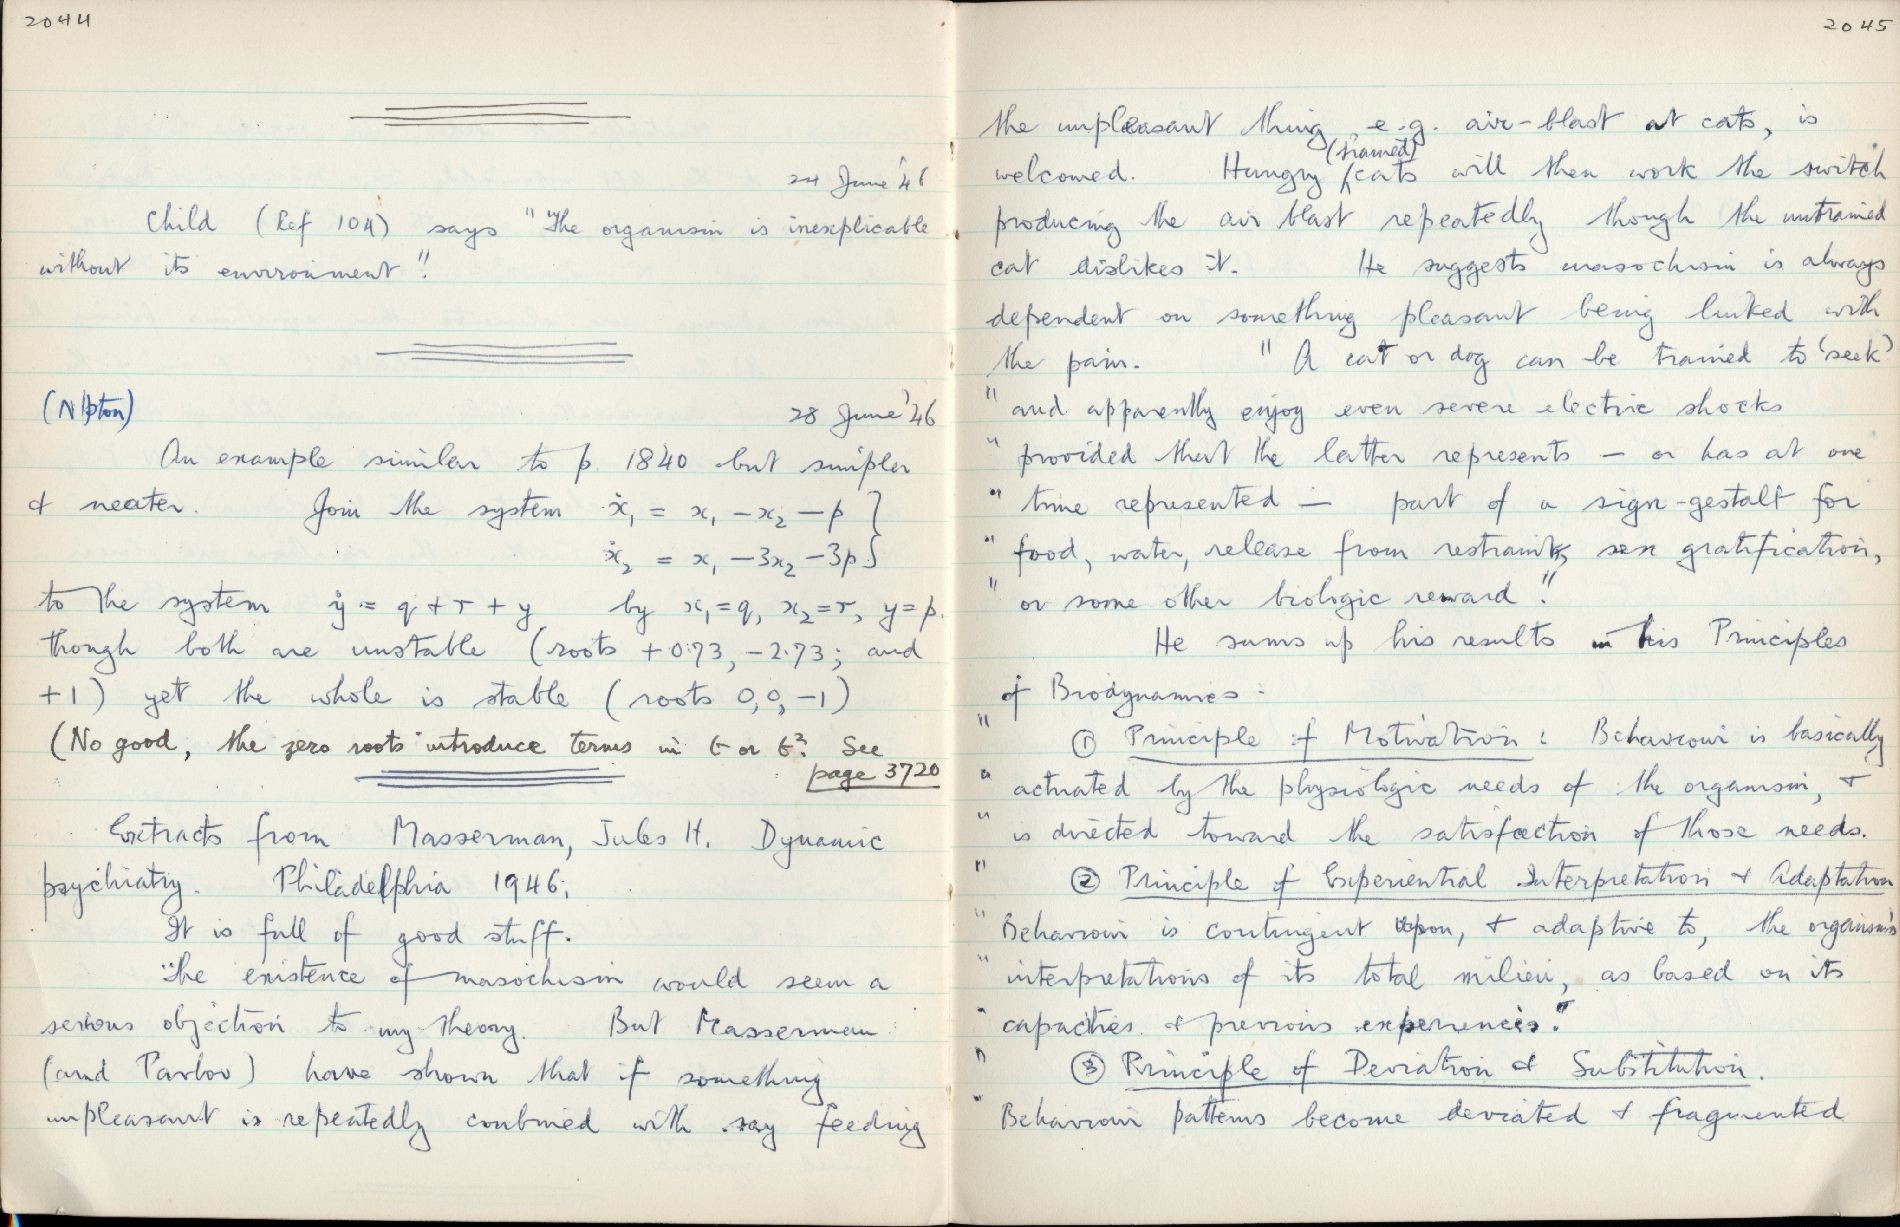 2044
24 June '46
Child (Ref 104) says " "The organism is inexplicable
without its environment".
(N'pton)
28 June '46
An example similar to p. 1840 but simpler
& neater. Join the system ẋ₁ = x₁ − x₂ − p }
ẋ₂ = x₁ − 3x₂ − 3p }
to the system ẏ = q + r + y by x₁=q, x₂=r, y=p.
though both are unstable (roots +0.73, −2.73; and
+1) yet the whole is stable (roots 0, 0, −1)
(No good, the zero roots introduce terms in t or t². See
page 3720
Extracts from Masserman, Jules H. Dynamic
psychiatry. Philadelphia 1946.
It is full of good stuff.
The existence of masochism would seem a
serious objection to my theory. But Masserman
(and Pavlov) have shown that if something
unpleasant is repeatedly combined with say feeding
2045
the unpleasant thing, e.g. air-blast at cats, is
(trained)
welcomed. Hungry cats will then work the switch
producing the air blast repeatedly though the untrained
cat dislikes it. He suggests masochism is always
dependent on something pleasant being linked with
the pain. " A cat or dog can be trained to 'seek'
" and apparently enjoy even severe electric shocks
" provided that the latter represents — or has at one
" time represented — part of a sign-gestalt for
" food, water, release from restraint, sex gratification,
" or some other biologic reward".
He sums up his results in his Principles
of Biodynamics :
" ① Principle of Motivation : Behaviour is basically
" actuated by the physiologic needs of the organism, &
" is directed toward the satisfaction of those needs.
" ② Principle of Experiential Interpretation & Adaptation
" Behaviour is contingent upon, & adaptive to, the organism's
" interpretations of its total milieu, as based on its
" capacities & previous experiences."
" ③ Principle of Deviation & Substitution.
" Behaviour patterns become deviated & fragmented